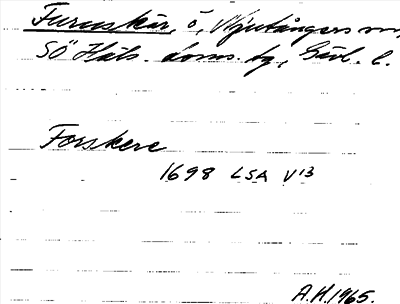 Furuskär, ö, Njutångers sn,
SÖ Häls. doms. bg., Gävl. l.
Forskere
1698 LSA V13
A.H.1965.